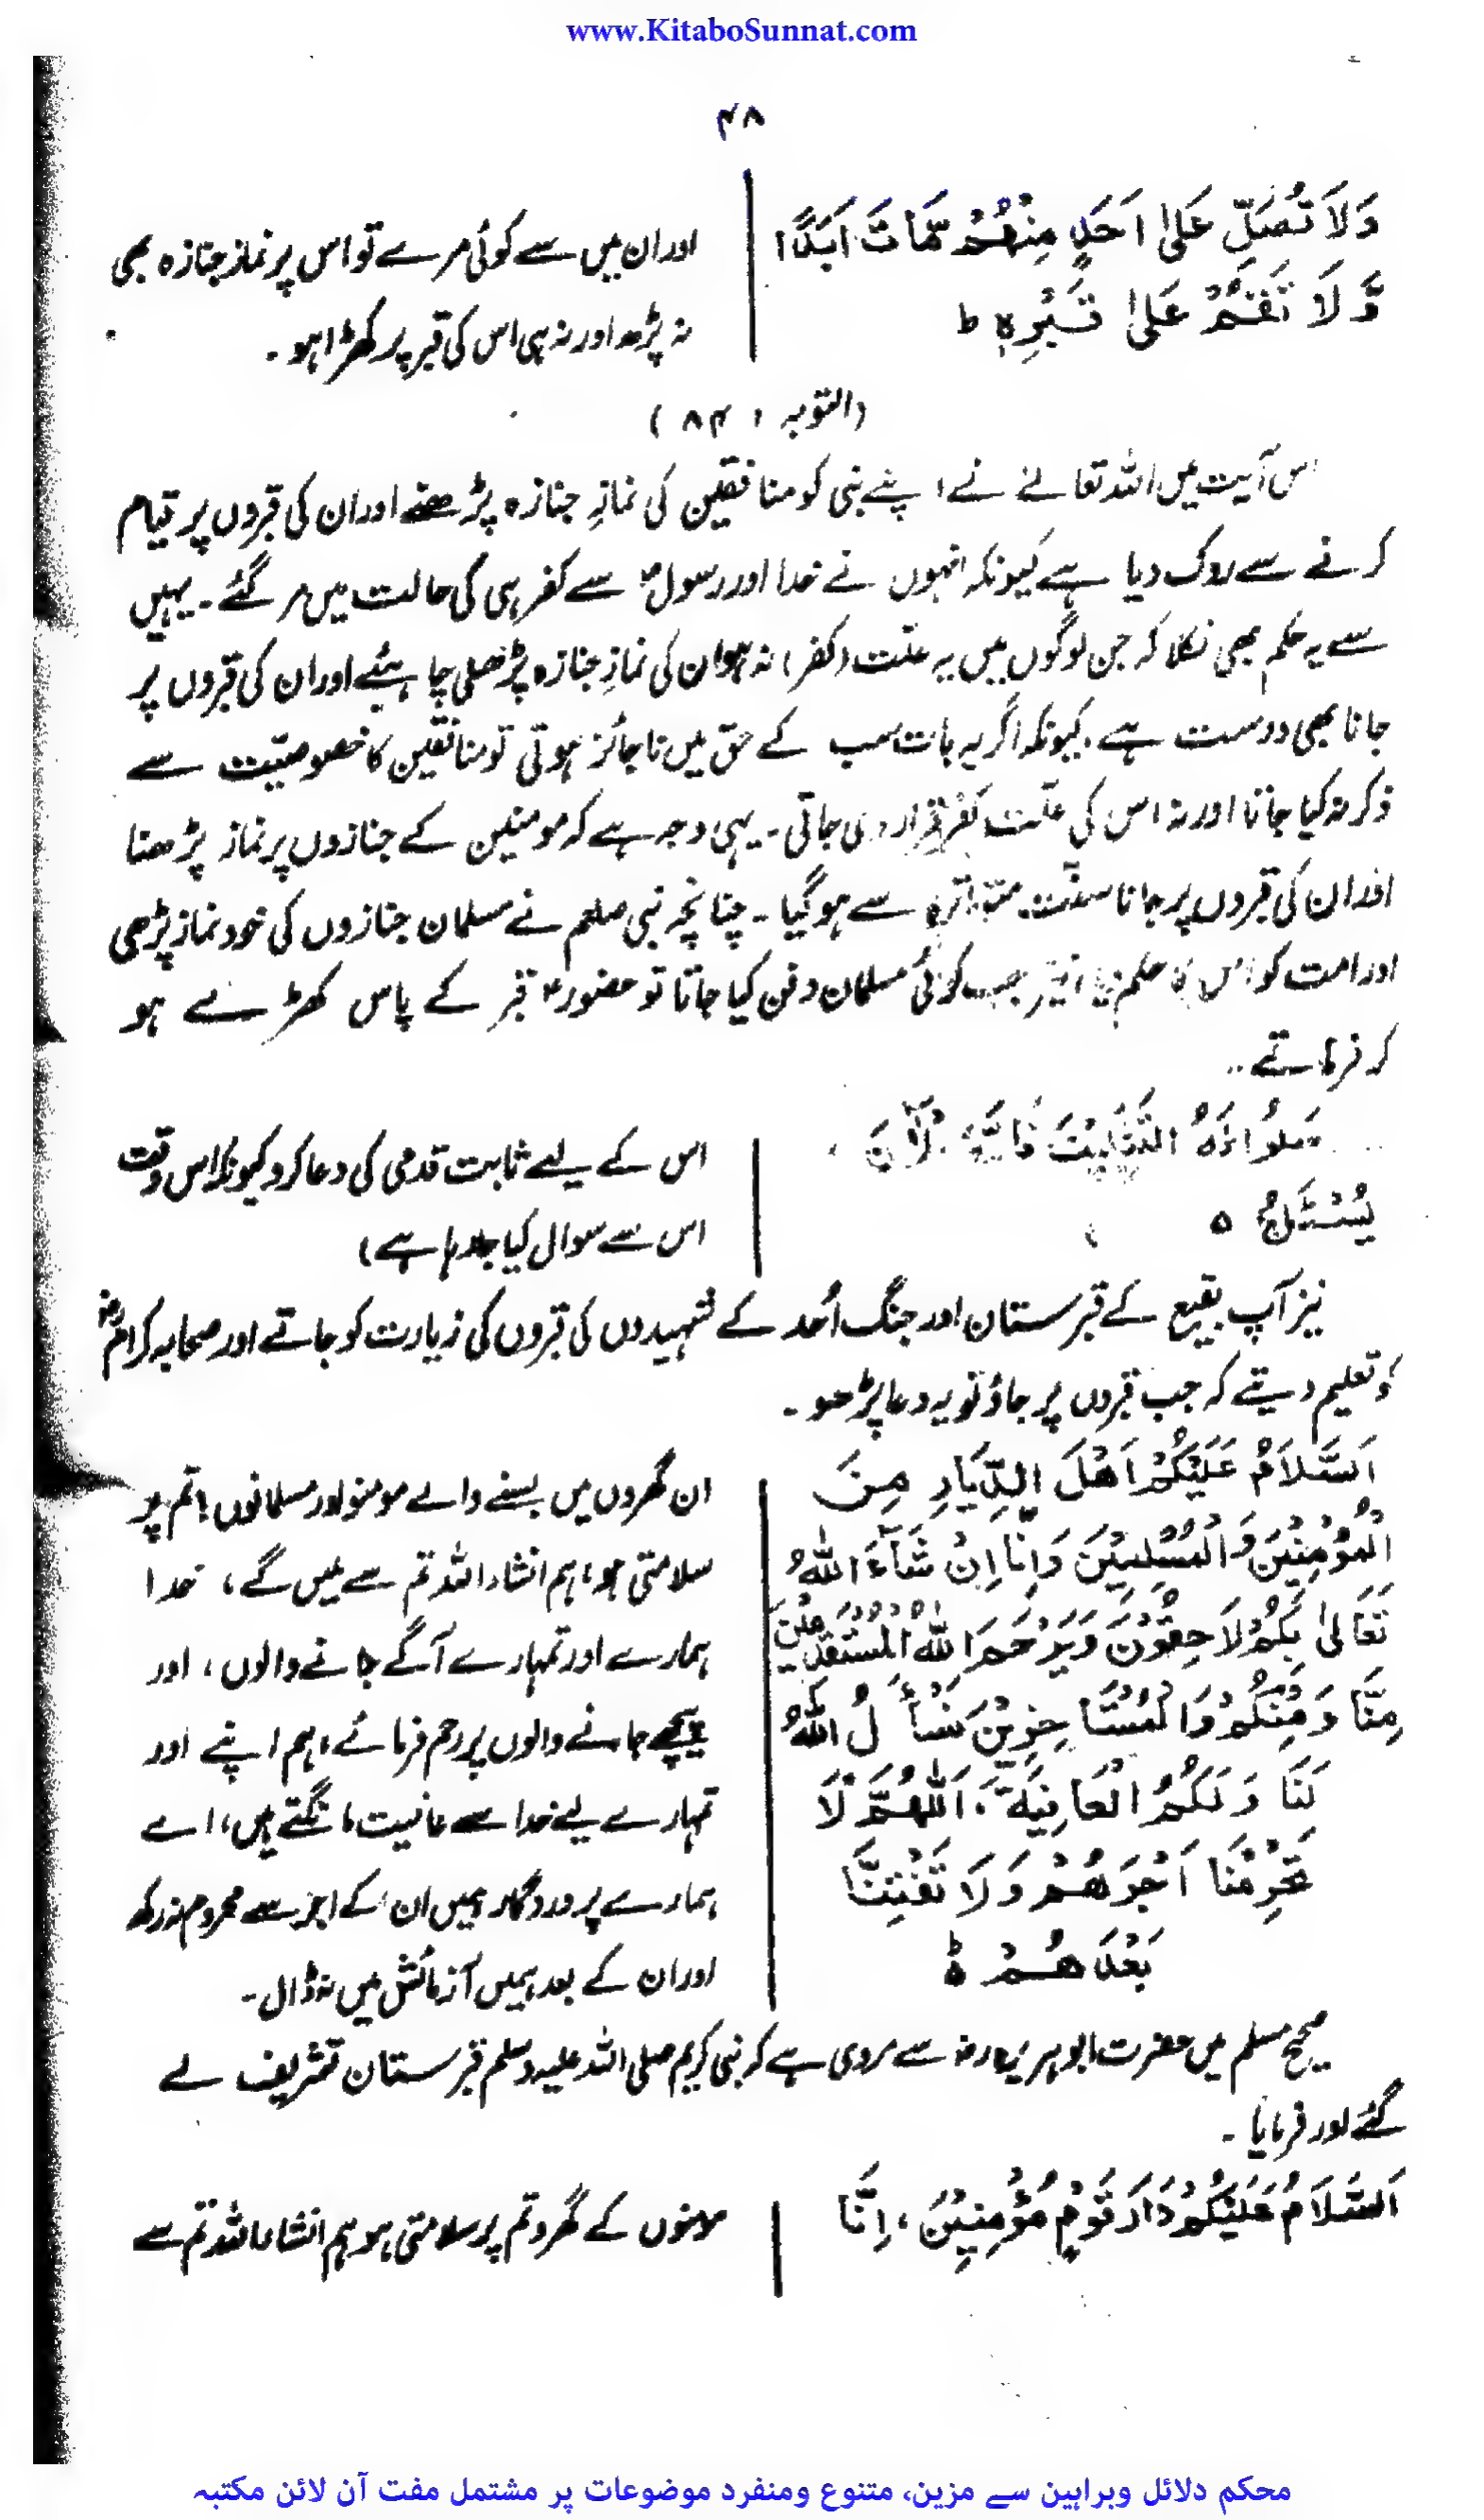 www.KitaboSunnat.com
۴۸
وَلَا تُصَلِّ عَلىٰ اَحَدٍ مِنْهُمْ مَّاتَ اَبَدًا
وَّلَا تَقُمْ عَلىٰ قَبْرِهٖ ط
اور ان میں سے کوئی مرے تو اس پر نماز جنازہ بھی
نہ پڑھ اور نہ ہی اس کی قبر پر کھڑا ہو۔
(التوبہ ، ۸۴)
اس آیت میں اللہ تعالےٰ نے اپنے نبی کو منافقین کی نمازِ جنازہ پڑھنے اور ان کی قبروں پر قیام
کرنے سے روک دیا ہے کیونکہ انہوں نے خدا اور رسولؐ سے کفر ہی کی حالت میں مر گئے۔ یہیں
سے یہ حکم بھی نکلا کہ جن لوگوں میں یہ علّت (کفر) نہ ہو ان کی نمازِ جنازہ پڑھنی چاہئیے اور ان کی قبروں پر
جانا بھی درست ہے، کیونکہ اگر یہ بات سب کے حق میں ناجائز ہوتی تو منافقین کا خصوصیّت سے
ذکر نہ کیا جاتا اور نہ اس کی علّت کفر قرار دی جاتی۔ یہی وجہ ہے کہ مومنین کے جنازوں پر نماز پڑھنا
اور ان کی قبروں پر جانا سنّت متواترہ سے ہو گیا۔ چنانچہ نبی صلعم نے مسلمان جنازوں کی خود نماز پڑھی
اور امت کو اس کا حکم دیا نیز جب کوئی مسلمان دفن کیا جاتا تو حضورؐ قبر کے پاس کھڑے ہو
کر فرماتے۔
سَلُوا لَهُ التَّثْبِيْتَ فَاِنَّهُ الْآنَ
يُسْئَلُ ٥
اس کے لیے ثابت قدمی کی دعا کرو کیونکہ اس وقت
اس سے سوال کیا جا رہا ہے)
نیز آپ بقیع کے قبرستان اور جنگ اُحد کے شہیدوں کی قبروں کی زیارت کو جاتے اور صحابہ کرامؓ
کو تعلیم دیتے کہ جب قبروں پر جاؤ تو یہ دعا پڑھو۔
اَلسَّلَامُ عَلَيْكُمْ اَهْلَ الدِّيَارِ مِنَ
الْمُؤْمِنِيْنَ وَالْمُسْلِمِيْنَ وَاِنَّا اِنْ شَآءَ اللّٰهُ
تَعَالىٰ بِكُمْ لَاحِقُوْنَ وَيَرْحَمُ اللّٰهُ الْمُسْتَقْدِمِيْنَ
مِنَّا وَمِنْكُمْ وَالْمُسْتَاخِرِيْنَ نَسْأَلُ اللّٰهَ
لَنَا وَلَكُمُ الْعَافِيَةَ، اَللّٰهُمَّ لَا
تَحْرِمْنَا اَجْرَهُمْ وَلَا تَفْتِنَّا
بَعْدَهُمْ ٥
ان گھروں میں بسنے والے مومنو اور مسلمانوں! تم پر
سلامتی ہو، ہم انشاء اللہ تم سے ملیں گے، خدا
ہمارے اور تمہارے آگے جانے والوں، اور
پیچھے جانے والوں پر رحم فرمائے، ہم اپنے اور
تمہارے لیے خدا سے عافیت مانگتے ہیں، اے
ہمارے پروردگار ہمیں ان کے اجر سے محروم نہ رکھ
اور ان کے بعد ہمیں آزمائش میں نہ ڈال۔
صحیح مسلم میں حضرت ابو ہریرہ رضؓ سے مروی ہے کہ نبی کریم صلی اللہ علیہ وسلم قبرستان تشریف لے
گئے اور فرمایا۔
اَلسَّلَامُ عَلَيْكُمْ دَارَ قَوْمٍ مُؤْمِنِيْنَ، اِنَّا
مومنوں کے گھرو تم پر سلامتی ہو ہم انشاء اللہ تم سے
محکم دلائل وبراہین سے مزین، متنوع ومنفرد موضوعات پر مشتمل مفت آن لائن مکتبہ